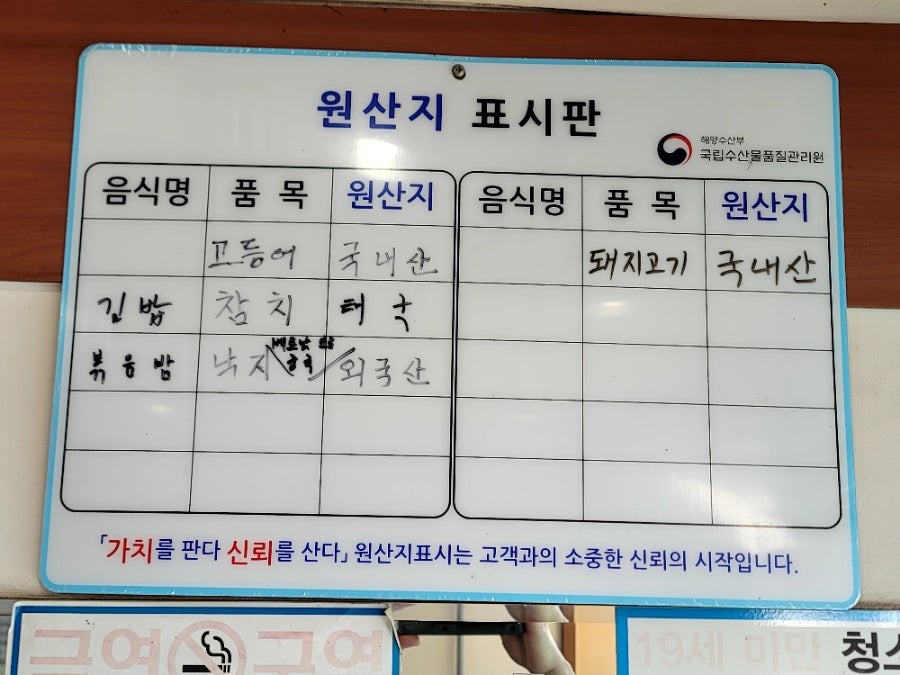 원산지 표시판
해양수산부
국립수산물품질관리원
음식명 품목 원산지 음식명 품목 원산지
고등어 국내산 돼지고기 국내산
김밥 참치 태국
베트남 중국
볶음밥 낙지 외국산
「가치를 판다 신뢰를 산다」 원산지표시는 고객과의 소중한 신뢰의 시작입니다.
금연 금연
19세 미만 청소